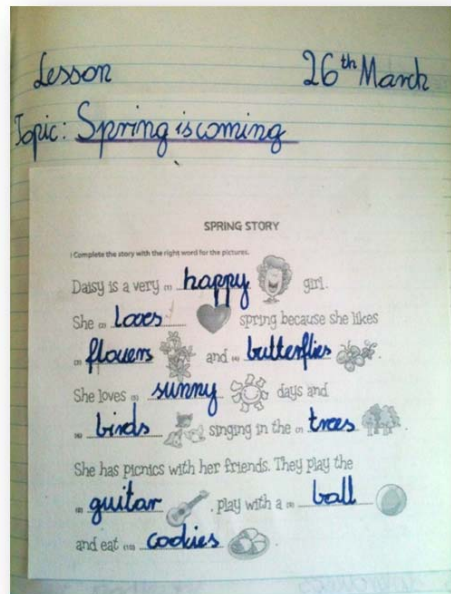 Lesson 26th March
Topic: Spring is coming
SPRING STORY
I Complete the story with the right word for the pictures.
Daisy is a very (1) happy girl.
She (2) loves spring because she likes
(3) flowers and (4) butterflies.
She loves (5) sunny days and
(6) birds singing in the (7) trees.
She has picnics with her friends. They play the
(8) guitar, play with a (9) ball
and eat (10) cookies.